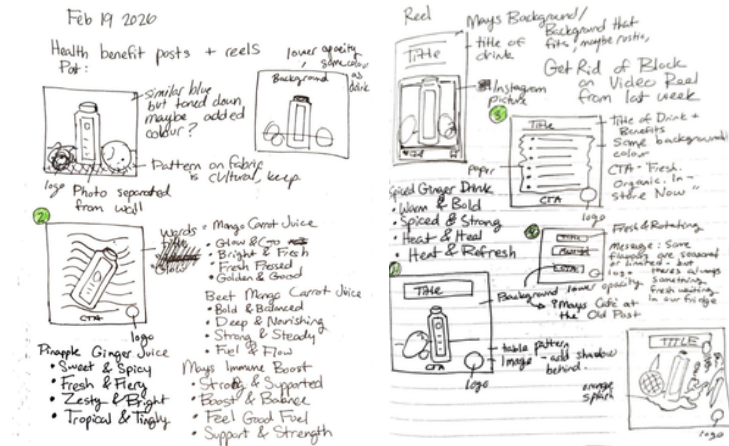 Feb 19 2026
Health benefit posts + reels
Post:
lower opacity
same colour
as
drink
Background
similar blue
but toned down
maybe added
colour?
Pattern on fabric
is cultural, keep.
logo
Photo separated
from wall
2
Words =
Title
Glow
CTA
logo
Mango Carrot Juice
• Glow & Go
• Bright & Fresh
• Fresh Pressed
• Golden & Good
Beet Mango Carrot Juice
• Bold & Balanced
• Deep & Nourishing
• Strong & Steady
• Fuel & Flow
Pinapple Ginger Juice
• Sweet & Spicy
• Fresh & Fiery
• Zesty & Bright
• Tropical & Tingly
Mays Immune Boost
• Strong & Supported
• Boost & Balance
• Feel Good Fuel
• Support & Strength
Reel
Mays Background/
Background that
fits, maybe rustic,
title of
drink
Title
Instagram
picture
Get Rid of Block
on Video Reel
from last week
3
Title
Title of Drink +
Benefits
Same background
colour
CTA - Fresh.
Organic. In-
store Now"
paper
CTA
logo
Spiced Ginger Drink
• Warm & Bold
• Spiced & Strong
• Heat & Heal
• Heat & Refresh
Title
CTA
logo
Fresh & Rotating
Message: Some
flavours are seasonal
or limited - but
theres always
something
fresh waiting
in our fridge
Title
Background lower opacity
Mays Cafe at
the Old Post
table pattern
Image - add shadow
behind.
CTA
logo
TITLE
orange
splash
logo